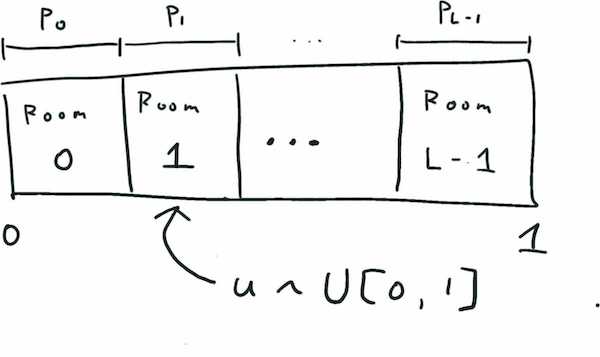 P0 P1 ... PL-1
Room Room Room
0 1 ... L-1
0 1
u ~ U[0, 1]